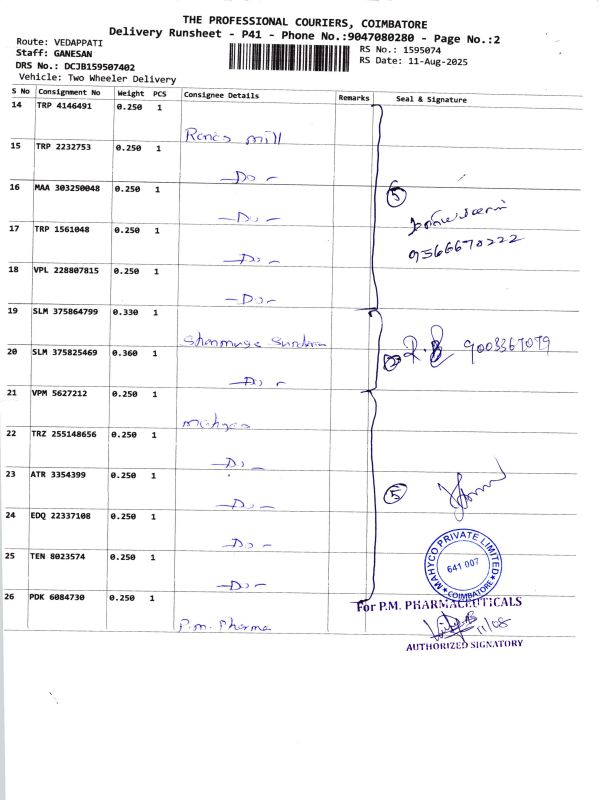 THE PROFESSIONAL COURIERS, COIMBATORE
Delivery Runsheet - P41 - Phone No.:9047080280 - Page No.:2
Route: VEDAPPATI
Staff: GANESAN
DRS No.: DCJB159507402
Vehicle: Two Wheeler Delivery
RS No.: 1595074
RS Date: 11-Aug-2025
S No Consignment No Weight PCS Consignee Details Remarks Seal & Signature
14 TRP 4146491 0.250 1
mill
15 TRP 2232753 0.250 1
-Do-
16 MAA 303250048 0.250 1
-Do-
5
17 TRP 1561048 0.250 1
-Do-
9566670222
18 VPL 228807815 0.250 1
-Do-
19 SLM 375864799 0.330 1
Shanmuga Sundaram
9003367079
20 SLM 375825469 0.360 1
-Do-
2
21 VPM 5627212 0.250 1
Mahyco
22 TRZ 255148656 0.250 1
-Do-
23 ATR 3354399 0.250 1
-Do-
5
24 EDQ 22337108 0.250 1
-Do-
25 TEN 8023574 0.250 1
-Do-
MAHYCO PRIVATE LIMITED
641 007
COIMBATORE
26 PDK 6084730 0.250 1
P.m. Pharma
For P.M. PHARMACEUTICALS
11/08
AUTHORIZED SIGNATORY